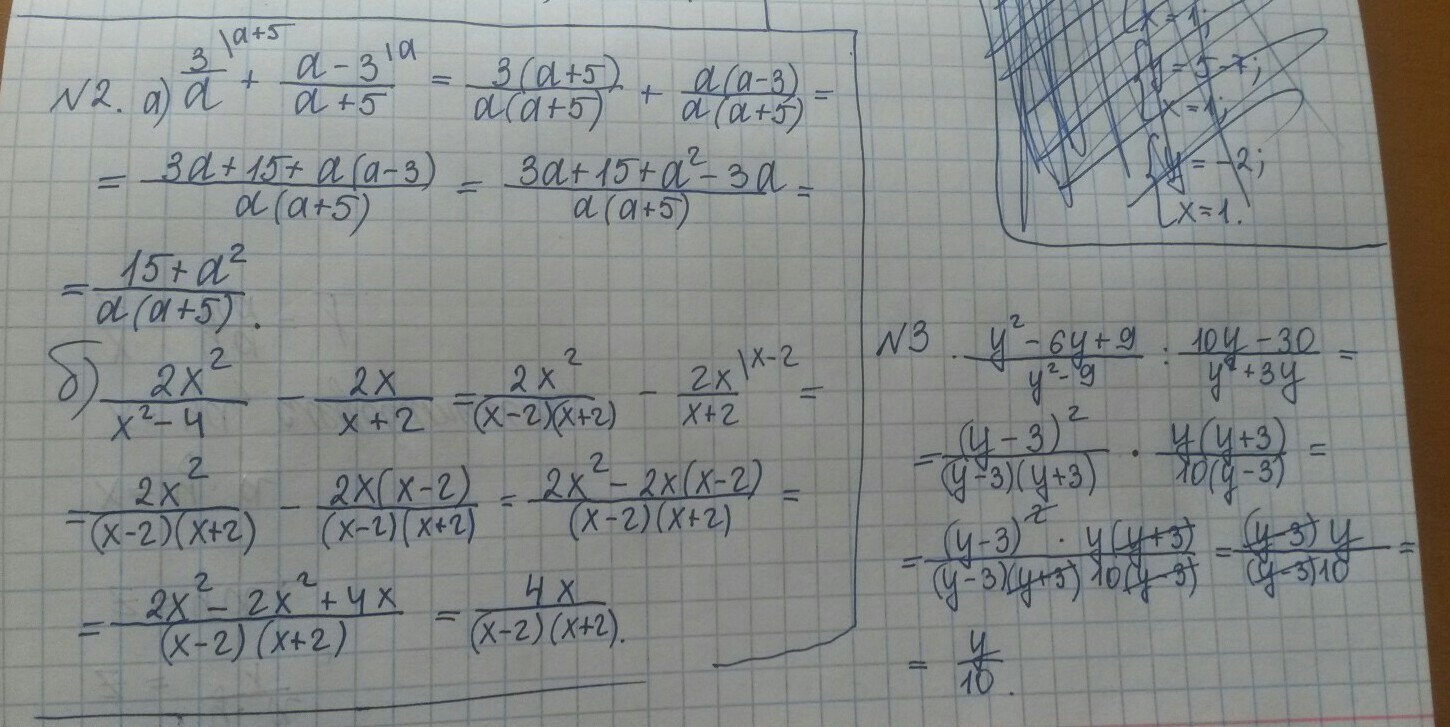 №2. а) 3/a \a+5 + a-3/a+5 \a = 3(a+5)/a(a+5) + a(a-3)/a(a+5) =
= 3a+15+a(a-3)/a(a+5) = 3a+15+a²-3a/a(a+5) =
= 15+a²/a(a+5).
б) 2x²/x²-4 - 2x/x+2 = 2x²/(x-2)(x+2) - 2x/x+2 \x-2 =
= 2x²/(x-2)(x+2) - 2x(x-2)/(x-2)(x+2) = 2x²-2x(x-2)/(x-2)(x+2) =
= 2x²-2x²+4x/(x-2)(x+2) = 4x/(x-2)(x+2).
x=1;
y=5-x;
x=1;
y=-2;
x=1.
№3. y²-6y+9/y²-9 : 10y-30/y²+3y =
= (y-3)²/(y-3)(y+3) · y(y+3)/10(y-3) =
= (y-3)² · y(y+3)/(y-3)(y+3) 10(y-3) = (y-3)y/(y-3)10 =
= y/10.